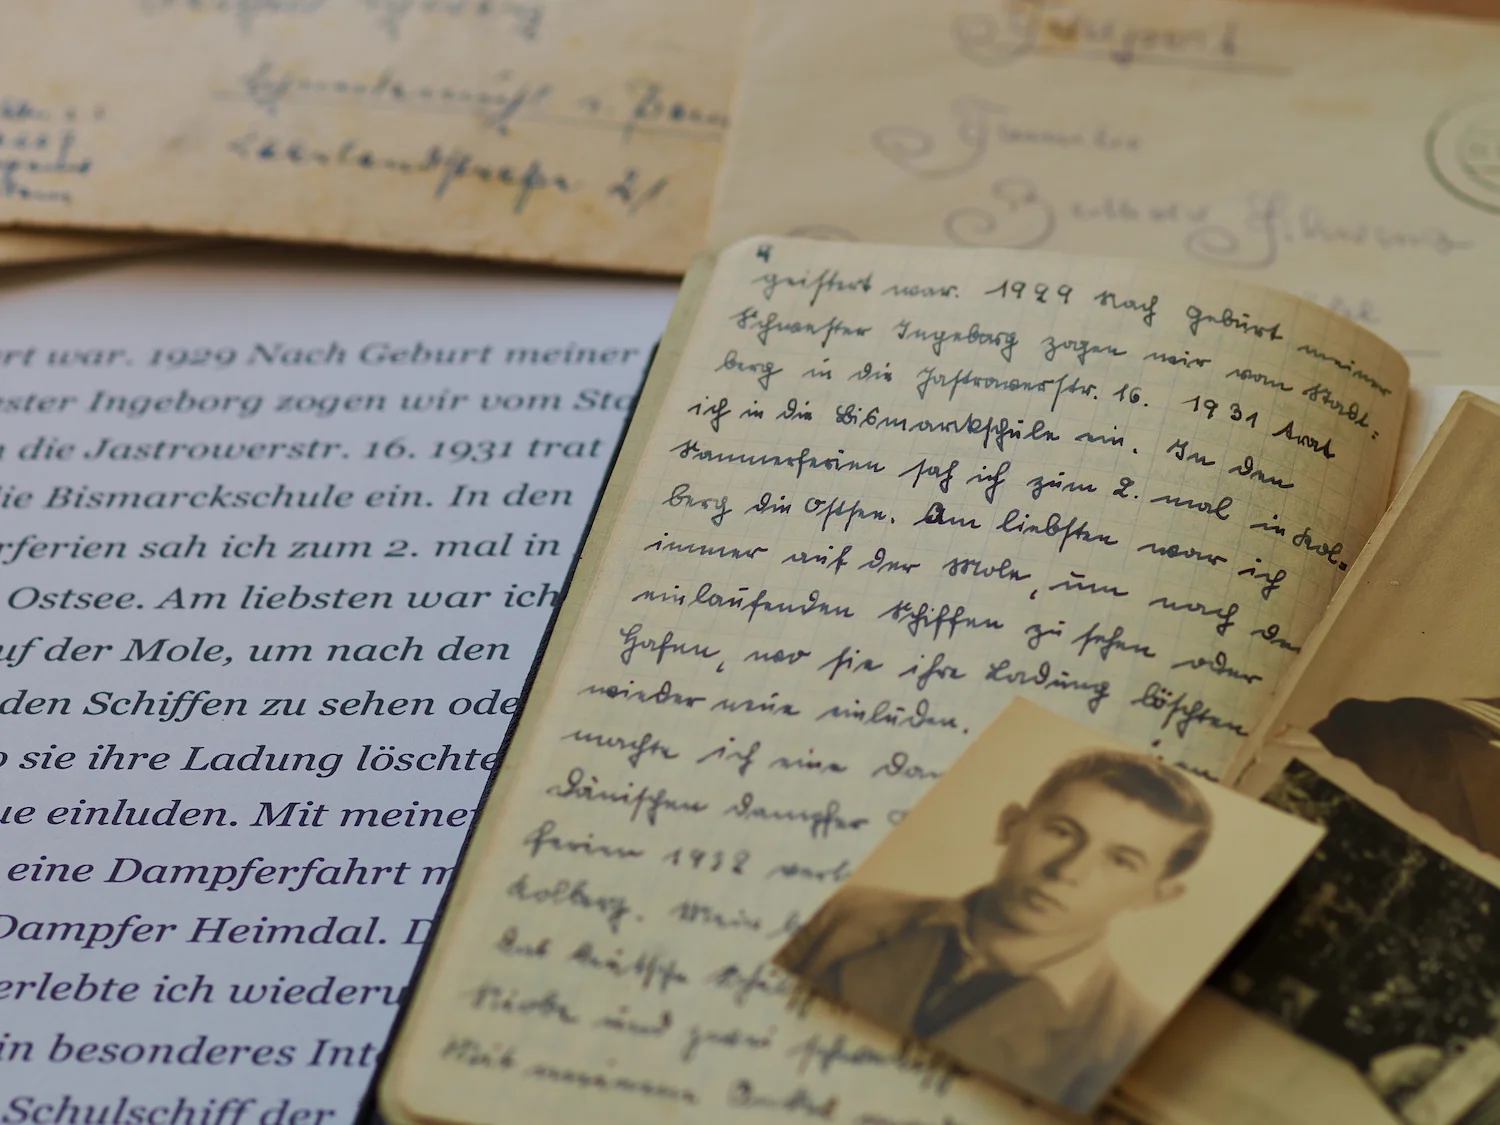 Schneidemühl
21
rt war. 1929 Nach Geburt meiner
ster Ingeborg zogen wir vom Sta
die Jastrowerstr. 16. 1931 trat
ie Bismarckschule ein. In den
rferien sah ich zum 2. mal in
Ostsee. Am liebsten war ich
uf der Mole, um nach den
den Schiffen zu sehen ode
o sie ihre Ladung löschte
ue einluden. Mit meine
eine Dampferfahrt m
Dampfer Heimdal. D
erlebte ich wiederu
in besonderes Int
Schulschiff der
4
geistert war. 1929 Nach Geburt meiner
Schwester Ingeborg zogen wir vom Stadt=
berg in die Jastrowerstr. 16. 1931 trat
ich in die Bismarckschule ein. In den
Sommerferien sah ich zum 2. mal in Kol=
berg die Ostsee. Am liebsten war ich
immer auf der Mole, um nach den
einlaufenden Schiffen zu sehen oder
Hafen, wo sie ihre Ladung löschten
wieder neue einluden.
machte ich eine Dam
Dänischen Dampfer
ferien 1932 verl
Kolberg. Mein b
das deutsche Schulschiff
Niobe und zwei
Mit meinem Onkel